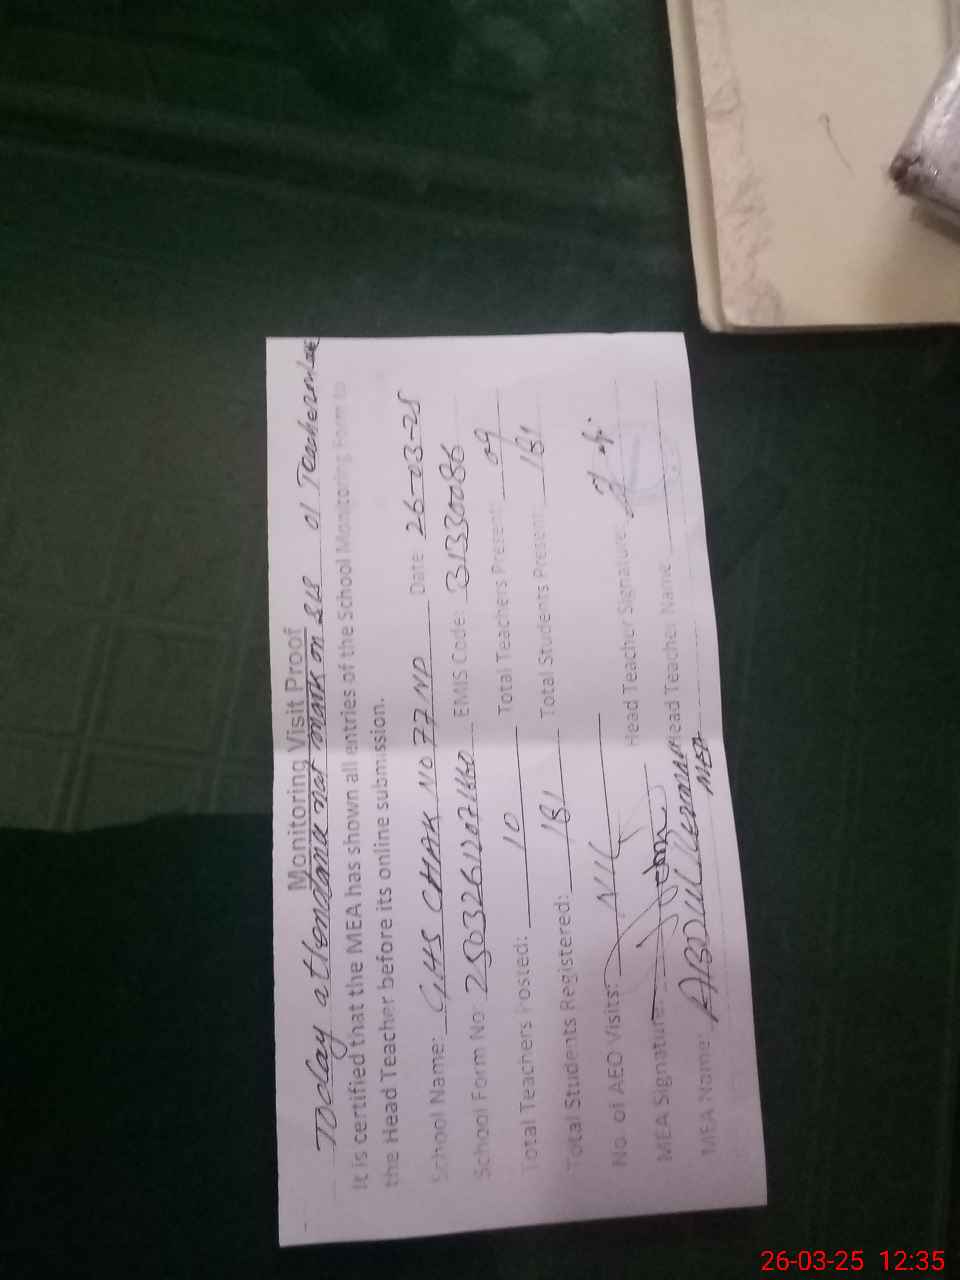 Monitoring Visit Proof
Today attendance not mark on SIS 01 Teacher
It is certified that the MEA has shown all entries of the School Monitoring Form to
the Head Teacher before its online submission.
School Name: GHS CHAK NO 77 NP Date 26-03-25
School Form No: EMIS Code: 31330086
Total Teachers Posted: 10 Total Teachers Present: 09
Total Students Registered: 181 Total Students Present: 181
No. of AEO Visits: NIL
MEA Signature: Head Teacher Signature:
MEA Name: ABDUL Head Teacher Name
MEA
26-03-25 12:35